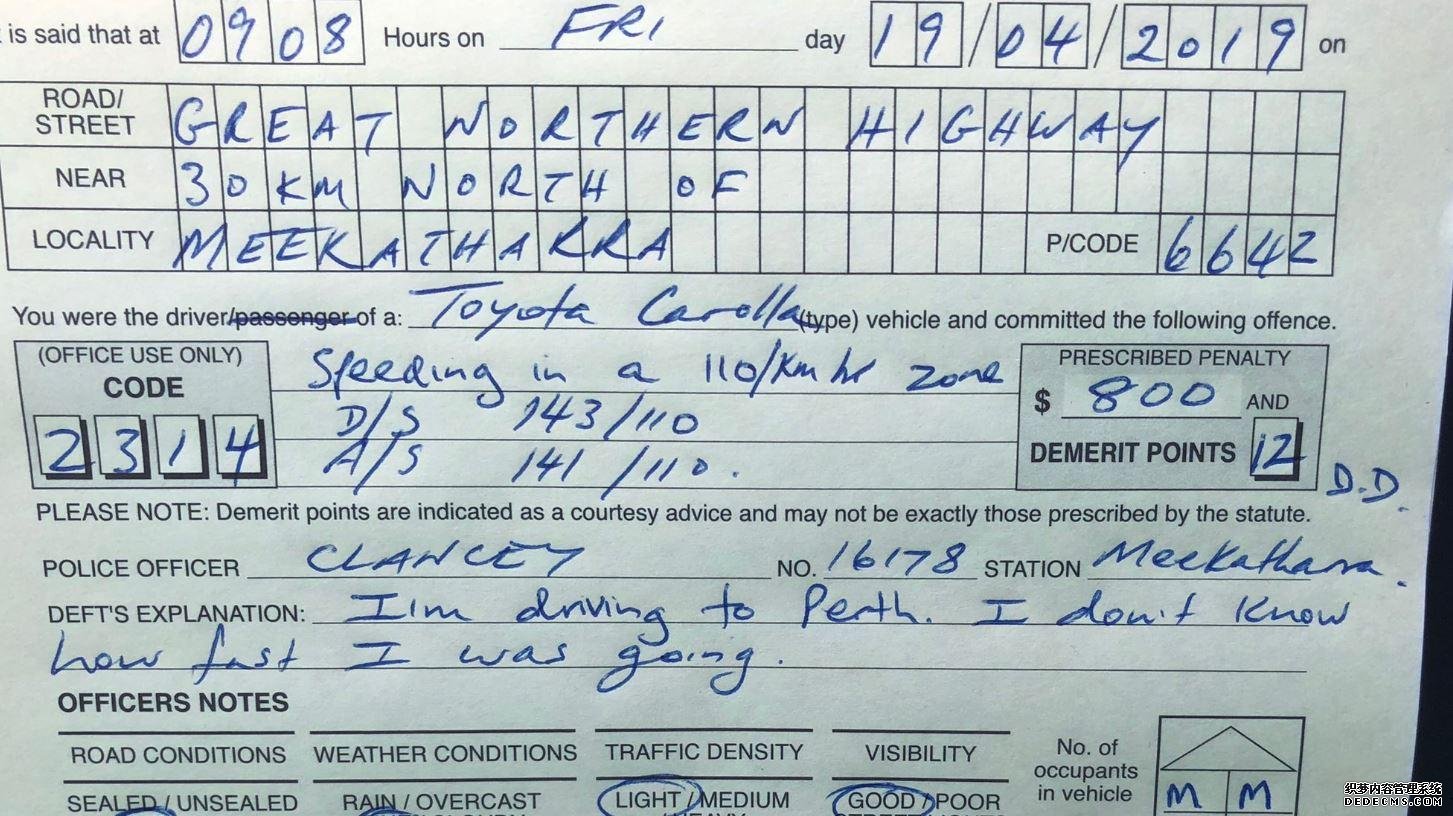 is said that at 0908 Hours on FRI day 19/04/2019 on
ROAD/
STREET GREAT NORTHERN HIGHWAY
NEAR 30 KM NORTH OF
LOCALITY MEEKATHARRA P/CODE 6642
You were the driver/passenger of a: Toyota Carolla (type) vehicle and committed the following offence.
(OFFICE USE ONLY)
CODE
2314
Speeding in a 110/km hr zone
D/S 143/110
A/S 141/110.
PRESCRIBED PENALTY
$ 800 AND
DEMERIT POINTS 12
D.D.
PLEASE NOTE: Demerit points are indicated as a courtesy advice and may not be exactly those prescribed by the statute.
POLICE OFFICER CLANCEY NO. 16178 STATION Meekatharra.
DEFT'S EXPLANATION: I'm driving to Perth. I don't know
how fast I was going.
OFFICERS NOTES
ROAD CONDITIONS WEATHER CONDITIONS TRAFFIC DENSITY VISIBILITY
No. of
occupants
in vehicle
M M
SEALED / UNSEALED RAIN / OVERCAST LIGHT / MEDIUM GOOD / POOR
织梦内容管理系统
DEDECMS.COM